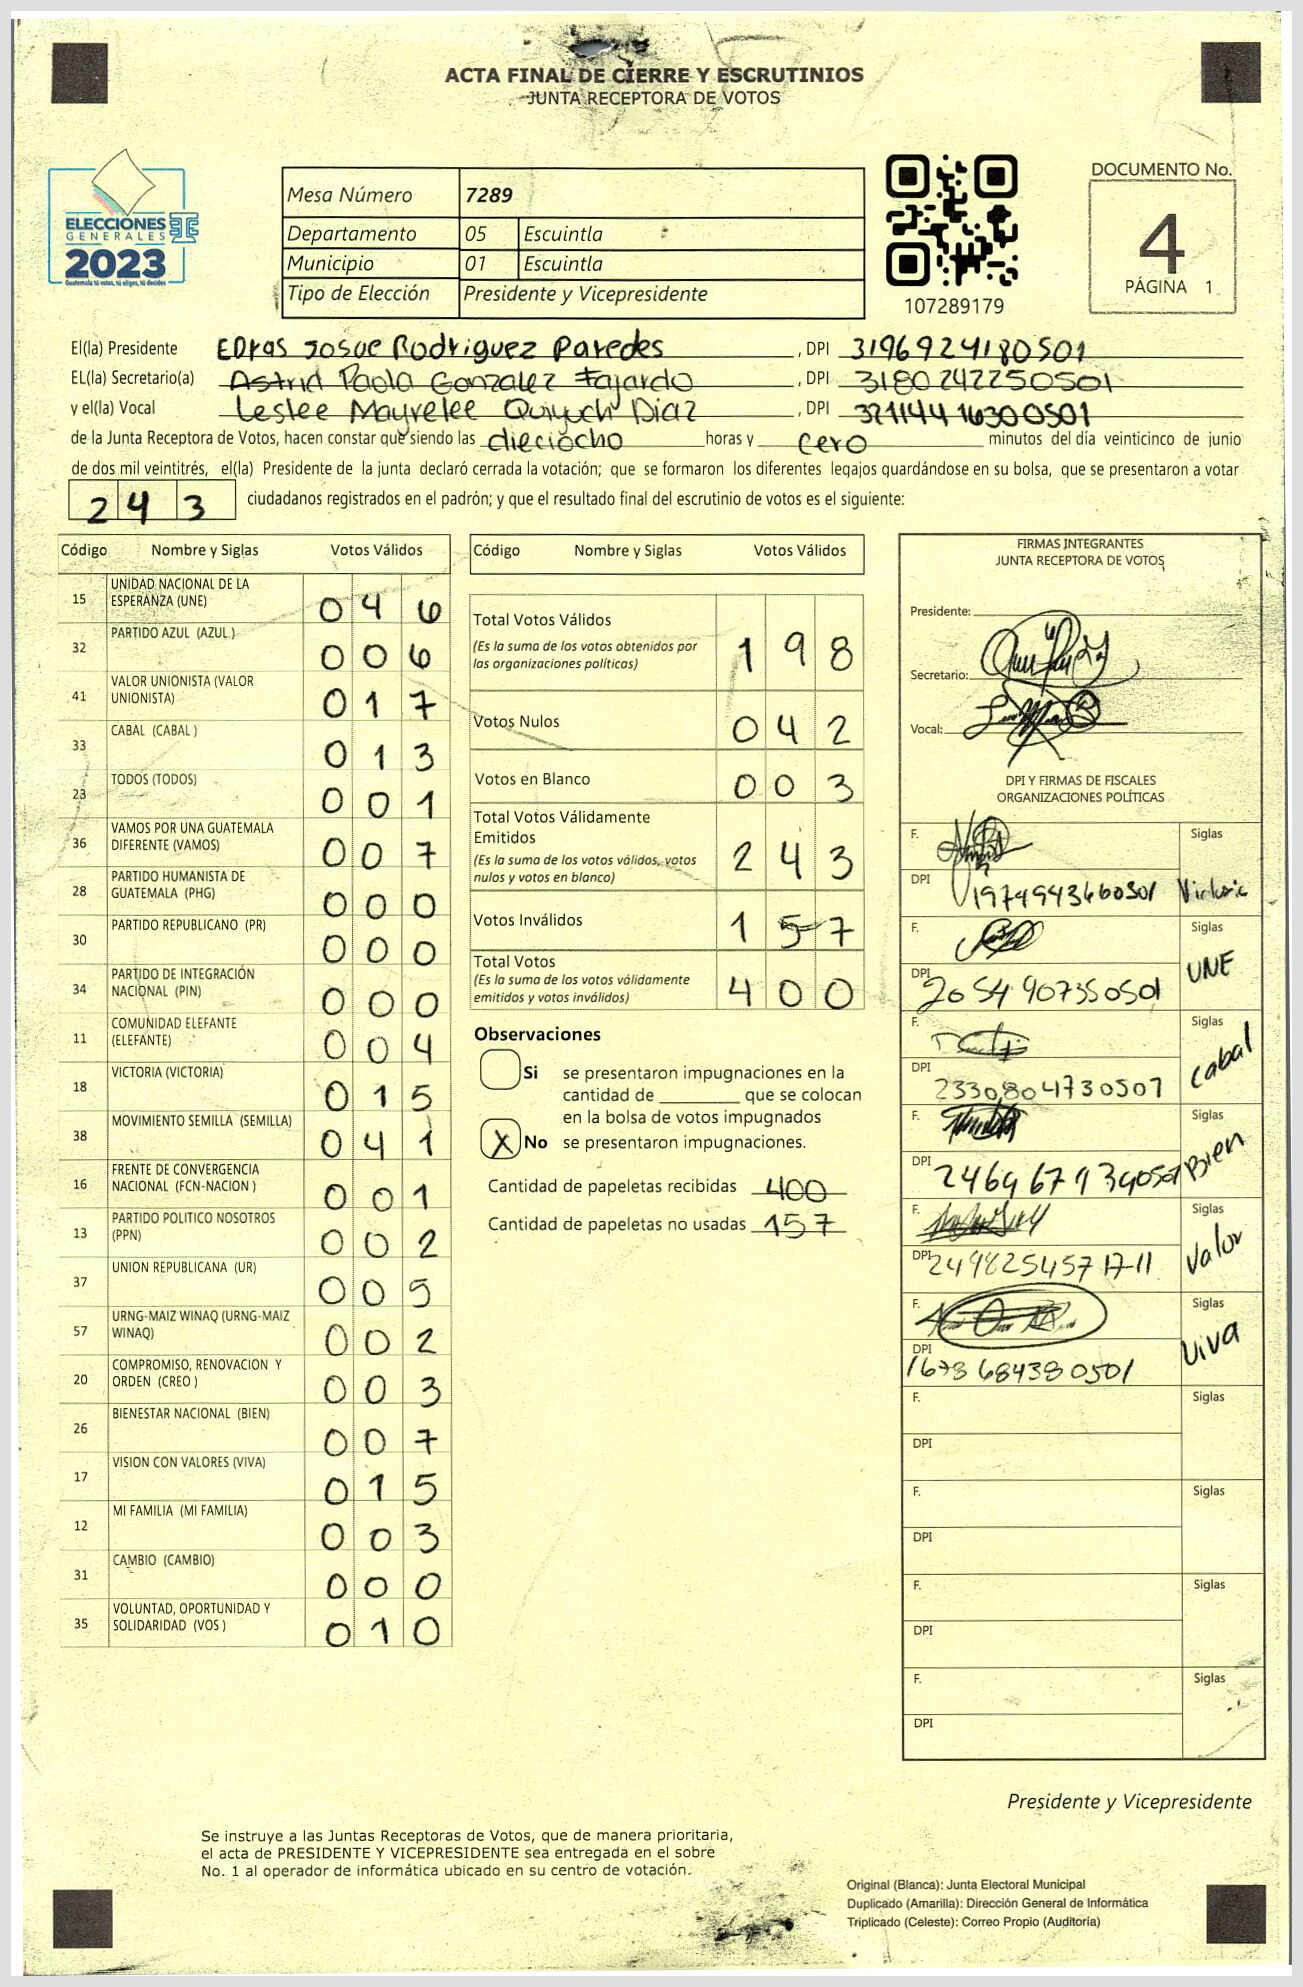 ACTA FINAL DE CIERRE Y ESCRUTINIOS
JUNTA RECEPTORA DE VOTOS
ELECCIONES
GENERALES
2023
Guatemala tú votas, tú eliges, tú decides
Mesa Número 7289
Departamento 05 Escuintla
Municipio 01 Escuintla
Tipo de Elección Presidente y Vicepresidente
107289179
DOCUMENTO No.
4
PÁGINA 1
El(la) Presidente Edras Josue Rodriguez Paredes, DPI 3196924180501
EL(la) Secretario(a) Astrid Paola Gonzalez Fajardo, DPI 3180242250501
y el(la) Vocal Leslee Mayrelee Quiyuch Diaz, DPI
de la Junta Receptora de Votos, hacen constar que siendo las dieciocho horas y cero minutos del día veinticinco de junio
de dos mil veintitrés, el(la) Presidente de la junta declaró cerrada la votación; que se formaron los diferentes legajos guardándose en su bolsa, que se presentaron a votar
243 ciudadanos registrados en el padrón; y que el resultado final del escrutinio de votos es el siguiente:
Código Nombre y Siglas Votos Válidos
15 UNIDAD NACIONAL DE LA ESPERANZA (UNE) 046
32 PARTIDO AZUL (AZUL ) 006
41 VALOR UNIONISTA (VALOR UNIONISTA) 017
33 CABAL (CABAL ) 013
23 TODOS (TODOS) 001
36 VAMOS POR UNA GUATEMALA DIFERENTE (VAMOS) 007
28 PARTIDO HUMANISTA DE GUATEMALA (PHG) 000
30 PARTIDO REPUBLICANO (PR) 000
34 PARTIDO DE INTEGRACIÓN NACIONAL (PIN) 000
11 COMUNIDAD ELEFANTE (ELEFANTE) 004
18 VICTORIA (VICTORIA) 015
38 MOVIMIENTO SEMILLA (SEMILLA) 041
16 FRENTE DE CONVERGENCIA NACIONAL (FCN-NACION ) 001
13 PARTIDO POLITICO NOSOTROS (PPN) 002
37 UNION REPUBLICANA (UR) 005
57 URNG-MAIZ WINAQ (URNG-MAIZ WINAQ) 002
20 COMPROMISO, RENOVACION Y ORDEN (CREO ) 003
26 BIENESTAR NACIONAL (BIEN) 007
17 VISION CON VALORES (VIVA) 015
12 MI FAMILIA (MI FAMILIA) 003
31 CAMBIO (CAMBIO) 000
35 VOLUNTAD, OPORTUNIDAD Y SOLIDARIDAD (VOS ) 010
Código Nombre y Siglas Votos Válidos
Total Votos Válidos 198
(Es la suma de los votos obtenidos por
las organizaciones políticas)
Votos Nulos 042
Votos en Blanco 003
Total Votos Válidamente
Emitidos 243
(Es la suma de los votos válidos, votos
nulos y votos en blanco)
Votos Inválidos 157
Total Votos 400
(Es la suma de los votos válidamente
emitidos y votos inválidos)
Observaciones
Si se presentaron impugnaciones en la
cantidad de ________ que se colocan
en la bolsa de votos impugnados
X No se presentaron impugnaciones.
Cantidad de papeletas recibidas 400
Cantidad de papeletas no usadas 157
FIRMAS INTEGRANTES
JUNTA RECEPTORA DE VOTOS
Presidente:
Secretario:
Vocal:
DPI Y FIRMAS DE FISCALES
ORGANIZACIONES POLÍTICAS
F. Siglas
DPI 1974994366 0501 Victoria
F. Siglas
DPI 2054907350501 UNE
F. Siglas
DPI 2330804730507 Cabal
F. Siglas
DPI Bien
F. Siglas
DPI 249825457 17-11 Valor
F. Siglas
DPI 1678684380501 Viva
F. Siglas
DPI
F. Siglas
DPI
F. Siglas
DPI
F. Siglas
DPI
Presidente y Vicepresidente
Se instruye a las Juntas Receptoras de Votos, que de manera prioritaria,
el acta de PRESIDENTE Y VICEPRESIDENTE sea entregada en el sobre
No. 1 al operador de informática ubicado en su centro de votación.
Original (Blanca): Junta Electoral Municipal
Duplicado (Amarilla): Dirección General de Informática
Triplicado (Celeste): Correo Propio (Auditoría)